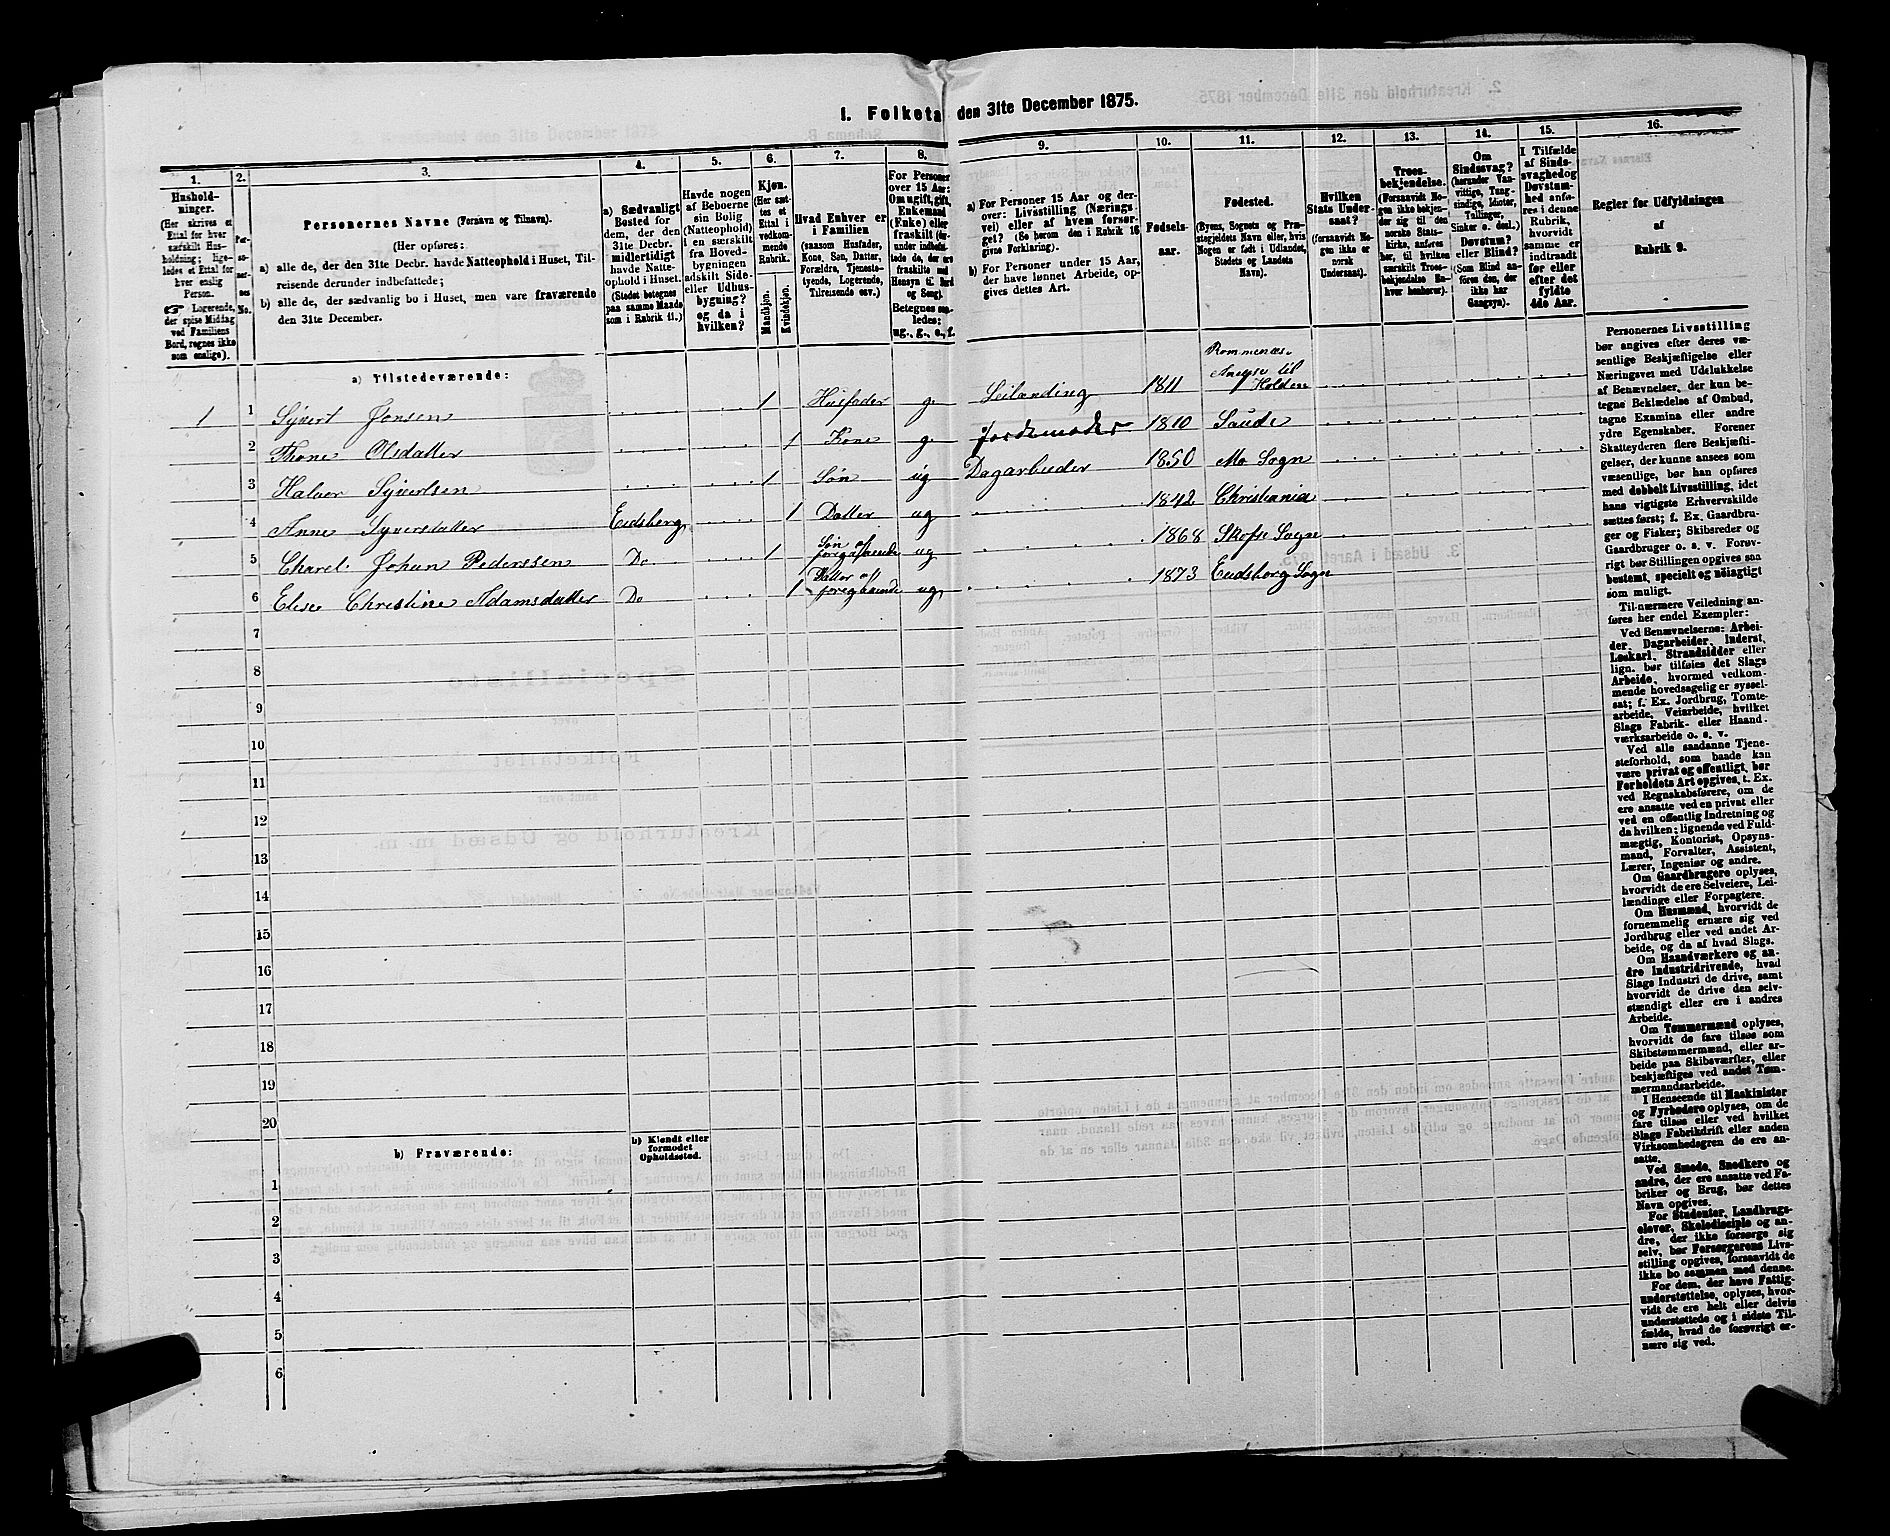 1. Folketa den 31te December 1875.
1.
Hushold-
ninger.
(Her skrives et
Ettal for hver
særskilt Hus-
holdning; lige-
ledes et Ettal for
hver enslig
Person.
☞ Logerende,
der spise Middag
ved Familiens
Bord, regnes ikke
som enslige).
2.
Per-
so-
ner-
nes
No.
3.
Personernes Navne (Fornavn og Tilnavn).
(Her opføres:
a) alle de, der den 31te Decbr. havde Natteophold i Huset, Til-
reisende derunder indbefattede;
b) alle de, der sædvanlig bo i Huset, men vare fraværende
den 31te December.
4.
a) Sædvanligt
Bosted for
dem, der den
31te Decbr.
midlertidigt
havde Natte-
ophold i Huset.
(Stedet betegnes
paa samme Maade
som i Rubrik 11.)
5.
Havde nogen
af Beboerne
sin Bolig
(Natteophold)
i en særskilt
fra Hoved-
bygningen
adskilt Side-
eller Udhus-
bygning?
og da i
hvilken?
6.
Kjøn.
(Her sæt-
tes et
Ettal i
vedkom-
mende
Rubrik.
Mandkjøn.
Kvindekjøn.
7.
Hvad Enhver er
i Familien
(saasom Husfader,
Kone, Søn, Datter,
Forældre, Tjeneste-
tyende, Logerende,
Tilreisende osv.)
8.
For Personer
over 15 Aar:
Om ugift, gift,
Enkemand
(Enke) eller
fraskilt (her-
under indbefat-
tede de, der ere
fraskilte med
Hensyn til Bord
og Seng).
Betegnes saa-
ledes:
ug., g., e., f.
9.
a) For Personer 15 Aar og der-
over: Livsstilling (Nærings-
vei) eller af hvem forsør-
get? (Se herom den i Rubrik 16
givne Forklaring).
b) For Personer under 15 Aar,
der have lønnet Arbeide, op-
gives dettes Art.
10.
Fødsels-
aar.
11.
Fødested.
(Byens, Sognets og Præ-
stegjeldets Navn eller, hvis
Nogen er født i Udlandet,
Stedets og Landets
Navn).
12.
Hvilken
Stats Under-
saat?
(forsaavidt No-
gen ikke er
norsk
Undersaat).
13.
Troes-
bekjendelse.
(Forsaavidt No-
gen ikke bekjen-
der sig til den
norske Stats-
kirke, anføres
her, til hvilken
særskilt Troes-
bekjendelse En-
hver henhører).
14.
Om
Sindssvag?
(herunder Van-
vittige, Tung-
sindige, Idioter,
Tullinger,
Sinker o. desl.)
Døvstum?
eller Blind?
(Som Blind an-
føres den, der
ikke har
Gangsyn).
15.
I Tilfælde
af Sinds-
svaghed og
Døvstum-
hed anfø-
res i denne
Rubrik,
hvorvidt
samme er
indtraadt
før eller
efter det
fyldte
4de Aar.
16.
Regler for Udfyldningen
af
Rubrik 9.
a) Tilstedeværende:
1 1 Syvert Jonsen 1 Husfader g. Leilænding 1811 Holden
2 Thone Olsdatter 1 Kone g 1810 Saude
3 Halvor Syvertsen 1 Søn ug Dagarbeider 1850 Mo Sogn
4 Anne Syversdatter Eidsberg 1 Datter ug 1842 Christiania
5 Charel Johan Pederssen Do 1 Søn af foregaaende ug 1868 Sogn
6 Elise Christine Adamsdatter Do 1 Datter af foregaaende ug 1873 Eidsberg Sogn
7
8
9
10
11
12
13
14
15
16
17
18
19
20
b) Fraværende:
b) Kjendt eller
formodet
Opholdssted.
1
2
3
4
5
6
Personernes Livsstilling
bør angives efter deres væ-
sentlige Beskjæftigelse eller
Næringsvei med Udelukkelse
af Benævnelser, der kun be-
tegne Beklædelse af Ombud,
tagne Examina eller andre
ydre Egenskaber. Forener
Skatteyderen flere Beskjæfti-
gelser, der kunne ansees som
væsentlige, bør han opføres
med dobbelt Livsstilling, idet
hans vigtigste Erhvervskilde
sættes først; f. Ex. Gaardbru-
ger og Fisker; Skibsreder og
Gaardbruger o. s. v. Forøv-
rigt bør Stillingen opgives saa
bestemt, specielt og nøiagtigt
som muligt.
Til nærmere Veiledning an-
føres her endel Exempler:
Ved Benævnelserne: Arbei-
der, Dagarbeider, Inderst,
Løskarl, Strandsidder eller
lign. bør tilføies det Slags
Arbeide, hvormed vedkom-
mende hovedsagelig er syssel-
sat; f. Ex. Jordbrug, Tomte-
arbeide, Veiarbeide, hvilket
Slags Fabrik- eller Haand-
værksarbeide o. s. v.
Ved alle saadanne Tjene-
steforhold, som baade kan
være privat og offentligt, bør
Forholdets Art opgives, t. Ex.
ved Regnskabsførere, om de
ere ansatte ved en privat eller
ved en offentlig Indretning og
da hvilken; lignende ved Fuld-
mægtig, Kontorist, Opsyns-
mand, Forvalter, Assistent,
Lærer, Ingeniør og andre.
Om Gaardbrugere oplyses,
hvorvidt de ere Selveiere, Lei-
lændinge eller Forpagtere.
Om Husmænd, hvorvidt de
fornemmelig ernære sig ved
Jordbrug eller ved andet Ar-
beide, og da af hvad Slags.
Om Haandværkere og an-
dre Industridrivende, hvad
Slags Industri de drive, samt
hvorvidt de drive den selv-
stændigt eller ere i andres
Arbeide.
Om Tømmermænd oplyses,
hvorvidt de fare tilsøs som
Skibstømmermænd, eller ar-
beide paa Skibsværfter, eller
beskjæftiges ved andet Tøm-
mermandsarbeide.
I Henseende til Maskinister
og Fyrbødere oplyses, om de
fare tilsøs eller ved hvilket
Slags Fabrikdrift eller anden
Virksomhedsgren de ere an-
satte.
Ved Smede, Snedkere og
andre, der ere ansatte ved Fa-
briker og Brug, bør dettes
Navn opgives.
For Studenter, Landbrugs-
elever, Skoledisciple og an-
dre, der ikke forsørge sig
selv, bør Forsørgerens Livs-
stilling opgives, forsaavidt de
ikke bo sammen med denne.
For dem, der have Fattig-
understøttelse, oplyses, hvor-
vidt de ere helt eller delvis
understøttede og i sidste Til-
fælde, hvad de forøvrigt er-
nære sig ved.